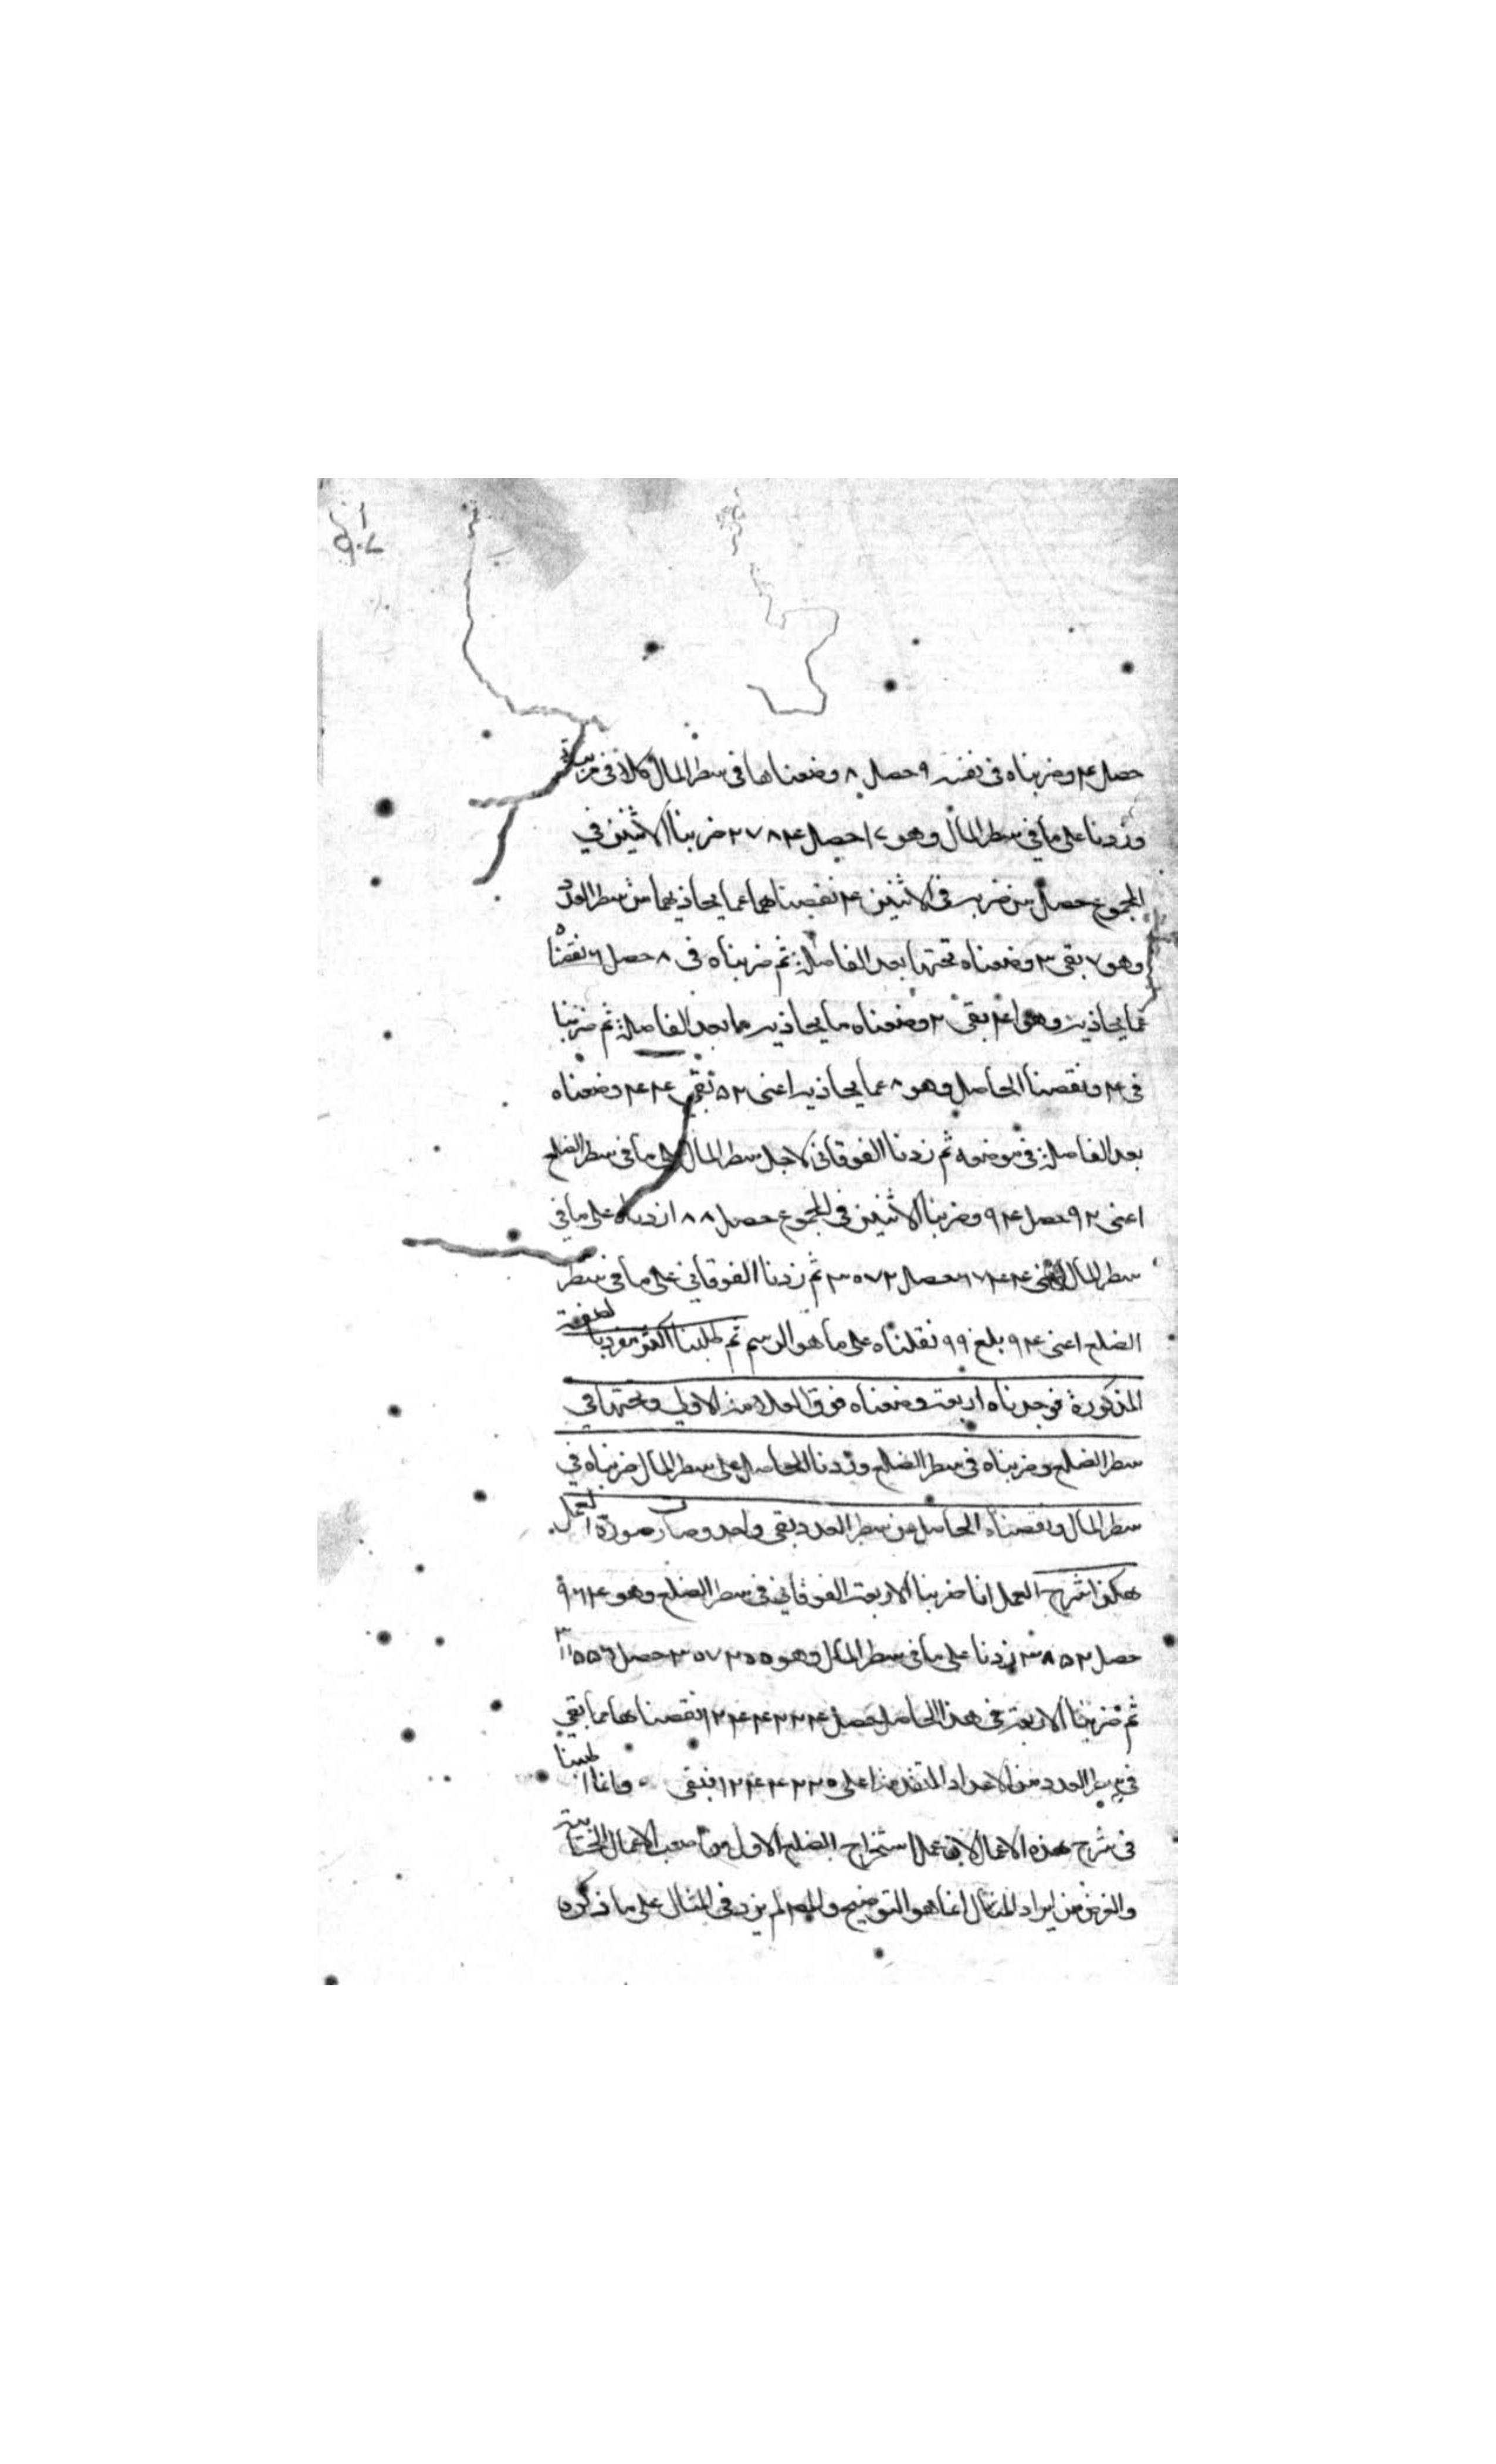 حصل ٤ وضربناه فى نفسه ٩ حصل ٨ وضعناها فى سطر المال كلا فى مرتبته
وزدنا على ما فى سطر المال وهو حصل ٢٧٨٤ ضربنا الاثنين في
المجموع حصل من ضربه فى الاثنين ٤ نقصناهما عما يحاذيهما من سطر العدد
وهو ٧ بقى ٣ وضعناه تحتها بعد الفاصلة ثم ضربناه فى ٨ حصل ١٦ نقصناه
عما يحاذيه وهو بقى ٢ وضعناه بعد الفاصلة ثم ضربنا
فى ٤ ونقصنا الحاصل وهو ٨ عما يحاذيه اعنى ٥٢ بقى ٤٤ وضعناه
بعد الفاصلة فى موضعه ثم زدنا الفوقانى لاجل سطر المال على ما فى سطر الضلع
اعنى ٩٢ حصل ٩٤ وضربنا الاثنين فى المجموع حصل ١٨٨ زدناه على ما فى
سطر المال اعنى حصل ٣٠٥٧٢ ثم زدنا الفوقانى على ما فى سطر
الضلع اعنى ٩٤ بلغ ٩٦ نقلناه على ما هو الرسم ثم طلبنا اكثر مفرد بالصفة
المذكورة فوجدناه اربعة وضعناه فوق العلامة الاولى وتحتها في
سطر الضلع وضربناه فى سطر الضلع وزدنا الحاصل على سطر المال ضربناه في
سطر المال ونقصناه الحاصل من سطر العدد بقى واحد وصار صورة العمل
هكذا شرح العمل انا ضربنا الاربعة الفوقانى فى سطر الضلع وهو ٩٦٤
حصل ٣٨٥٦ زدنا على ما فى سطر المال وهو حصل
ثم ضربنا الاربعة فى هذا الحاصل حصل ١٢٤٤٢٢٤ نقصناها عما بقى
فى سطر العدد من الاعداد المتقدمة اعلى ١٢٤٤٢٢٥ فبقى وانما اطنبنا
فى شرح هذه الاعمال لان عمل استخراج الضلع الاول من اصعب الاعمال الحسابية
والغرض من ايراد المثال انما هو التوضيح لم يزد فى المثال على ما ذكره